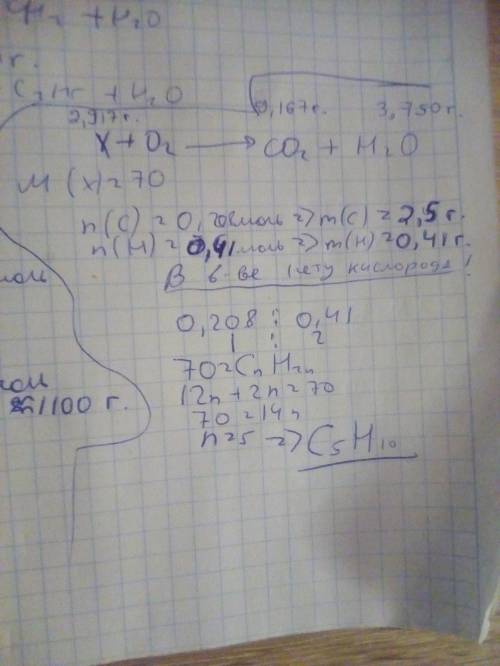 H₂ + H₂O
г.
+ H₂O
2,917г. 9,167г. 3,750г.
X + O₂ → CO₂ + H₂O
M (x) = 70
n(C) = 0,208моль => m(C) = 2,5г.
n(H) = 0,41моль => m(H) = 0,41г.
В в-ве нету кислорода!
0,208 : 0,41
1 : 2
70 = CₙH₂ₙ
12n + 2n = 70
моль
1100 г.
70 = 14n
n = 5 => C₅H₁₀